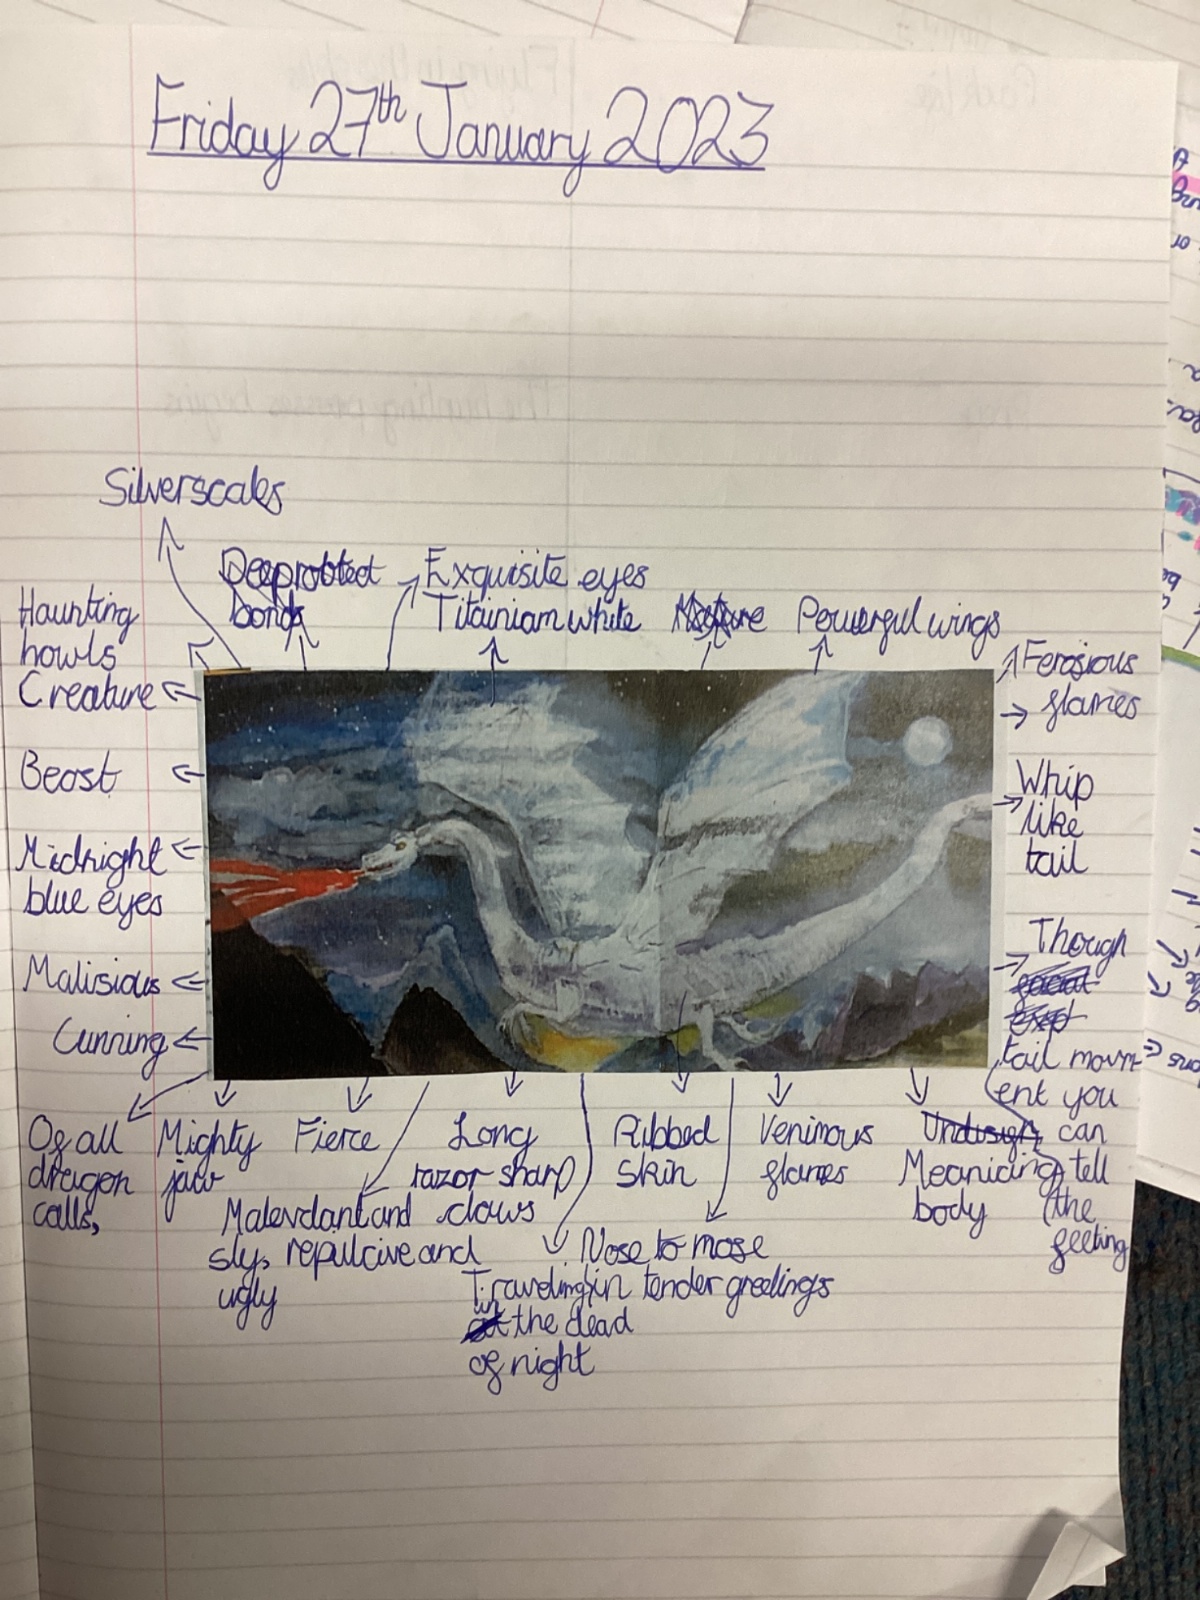 Friday 27th January 2023
Silverscales
Haunting
howls
Exquisite eyes
Titainiam white
Powerful wings
Ferosious
flames
Creature
Beast
Midnight
blue eyes
Malisious
Cunning
Whip
like
tail
Though
tail movm
ent you
can
tell
the
feeling
Of all
dragon
calls,
Mighty
jaw
Fierce
Long
razor sharp
claws
Ribbed
skin
Venimous
flames
Meanicing
body
Malevdant and
sly, repulcive and
ugly
Nose to mose
in tender greetings
Traveling
in the dead
of night